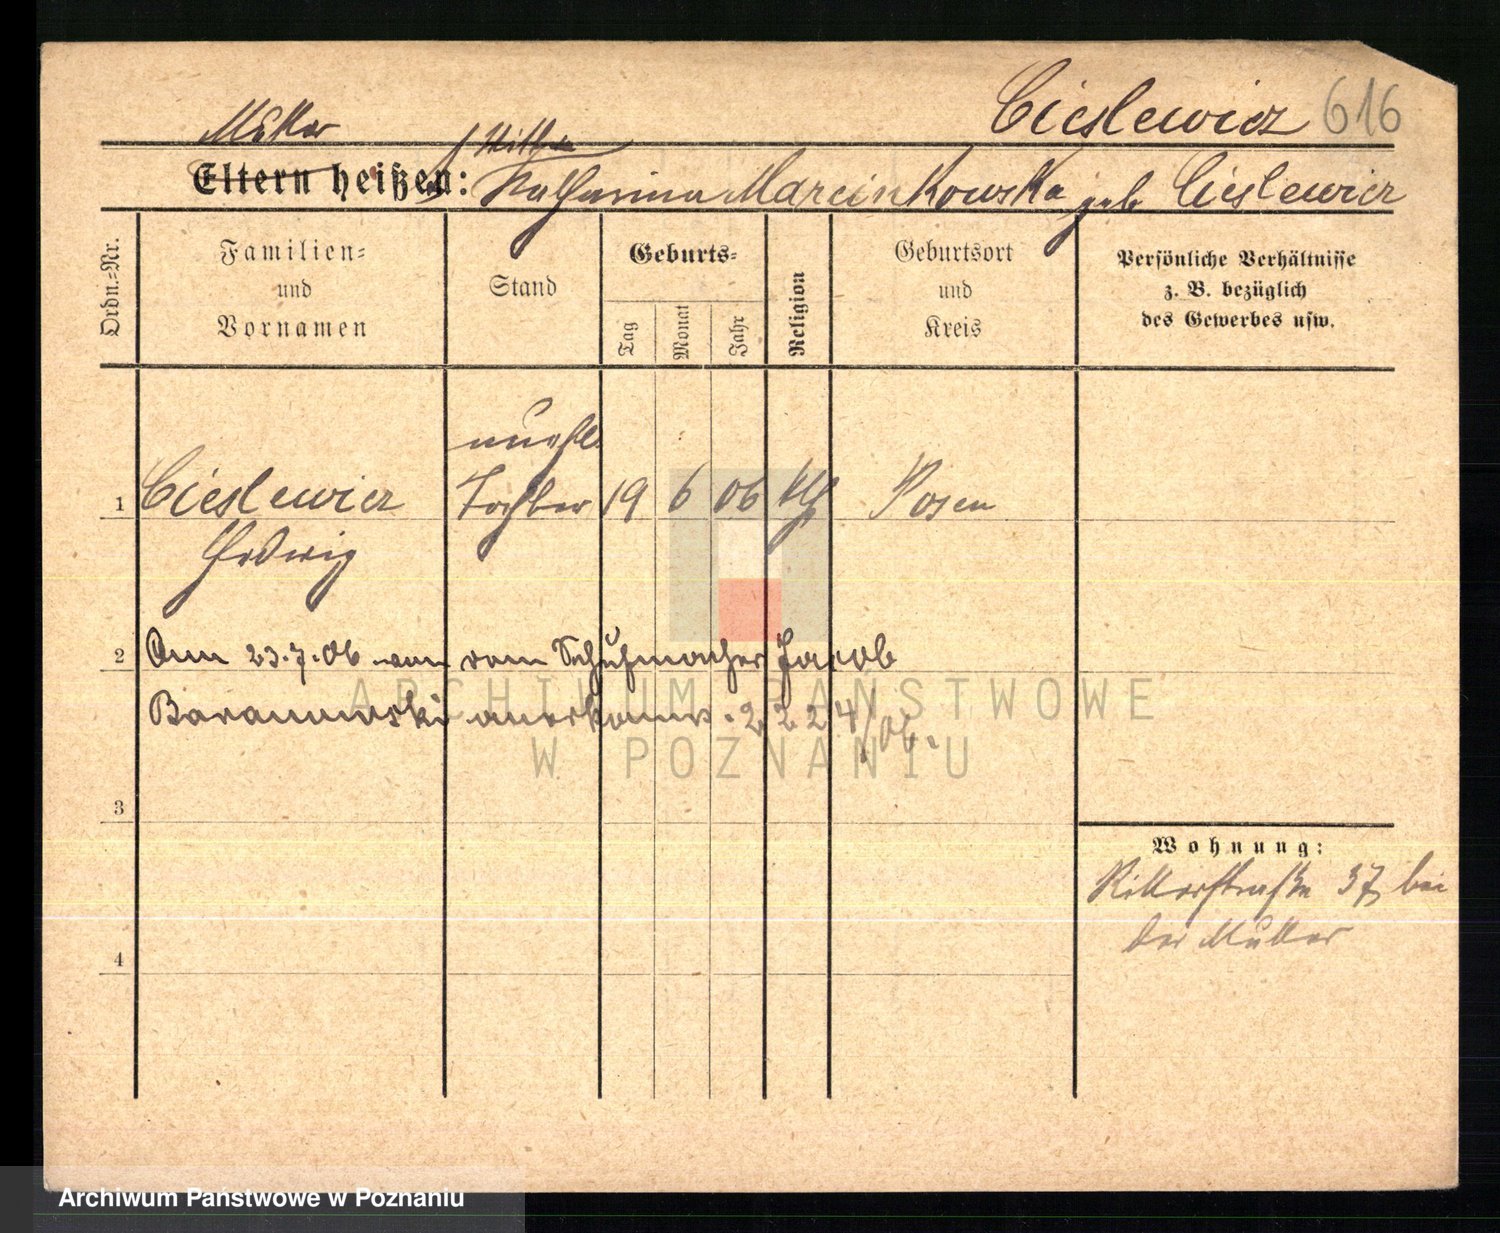 Cieslewicz 616
Mutter
Witwe
Eltern heißen: Katharina Marcinkowska geb. Cieslewicz
Ordn.=Nr.
Familien=
und
Vornamen
Stand
Geburts=
Tag
Monat
Jahr
Religion
Geburtsort
und
Kreis
Persönliche Verhältnisse
z. B. bezüglich
des Gewerbes usw.
unehl.
1 Cieslewicz Tochter 19 6 06 kth Posen
Hedwig
2 Am 23.7.06 vom Schuhmacher Jacob
Baranowski anerkannt. 2224/06.
3
4
Wohnung:
Ritterstraße 37, bei
der Mutter
ARCHIWUM PAŃSTWOWE
W POZNANIU
Archiwum Państwowe w Poznaniu